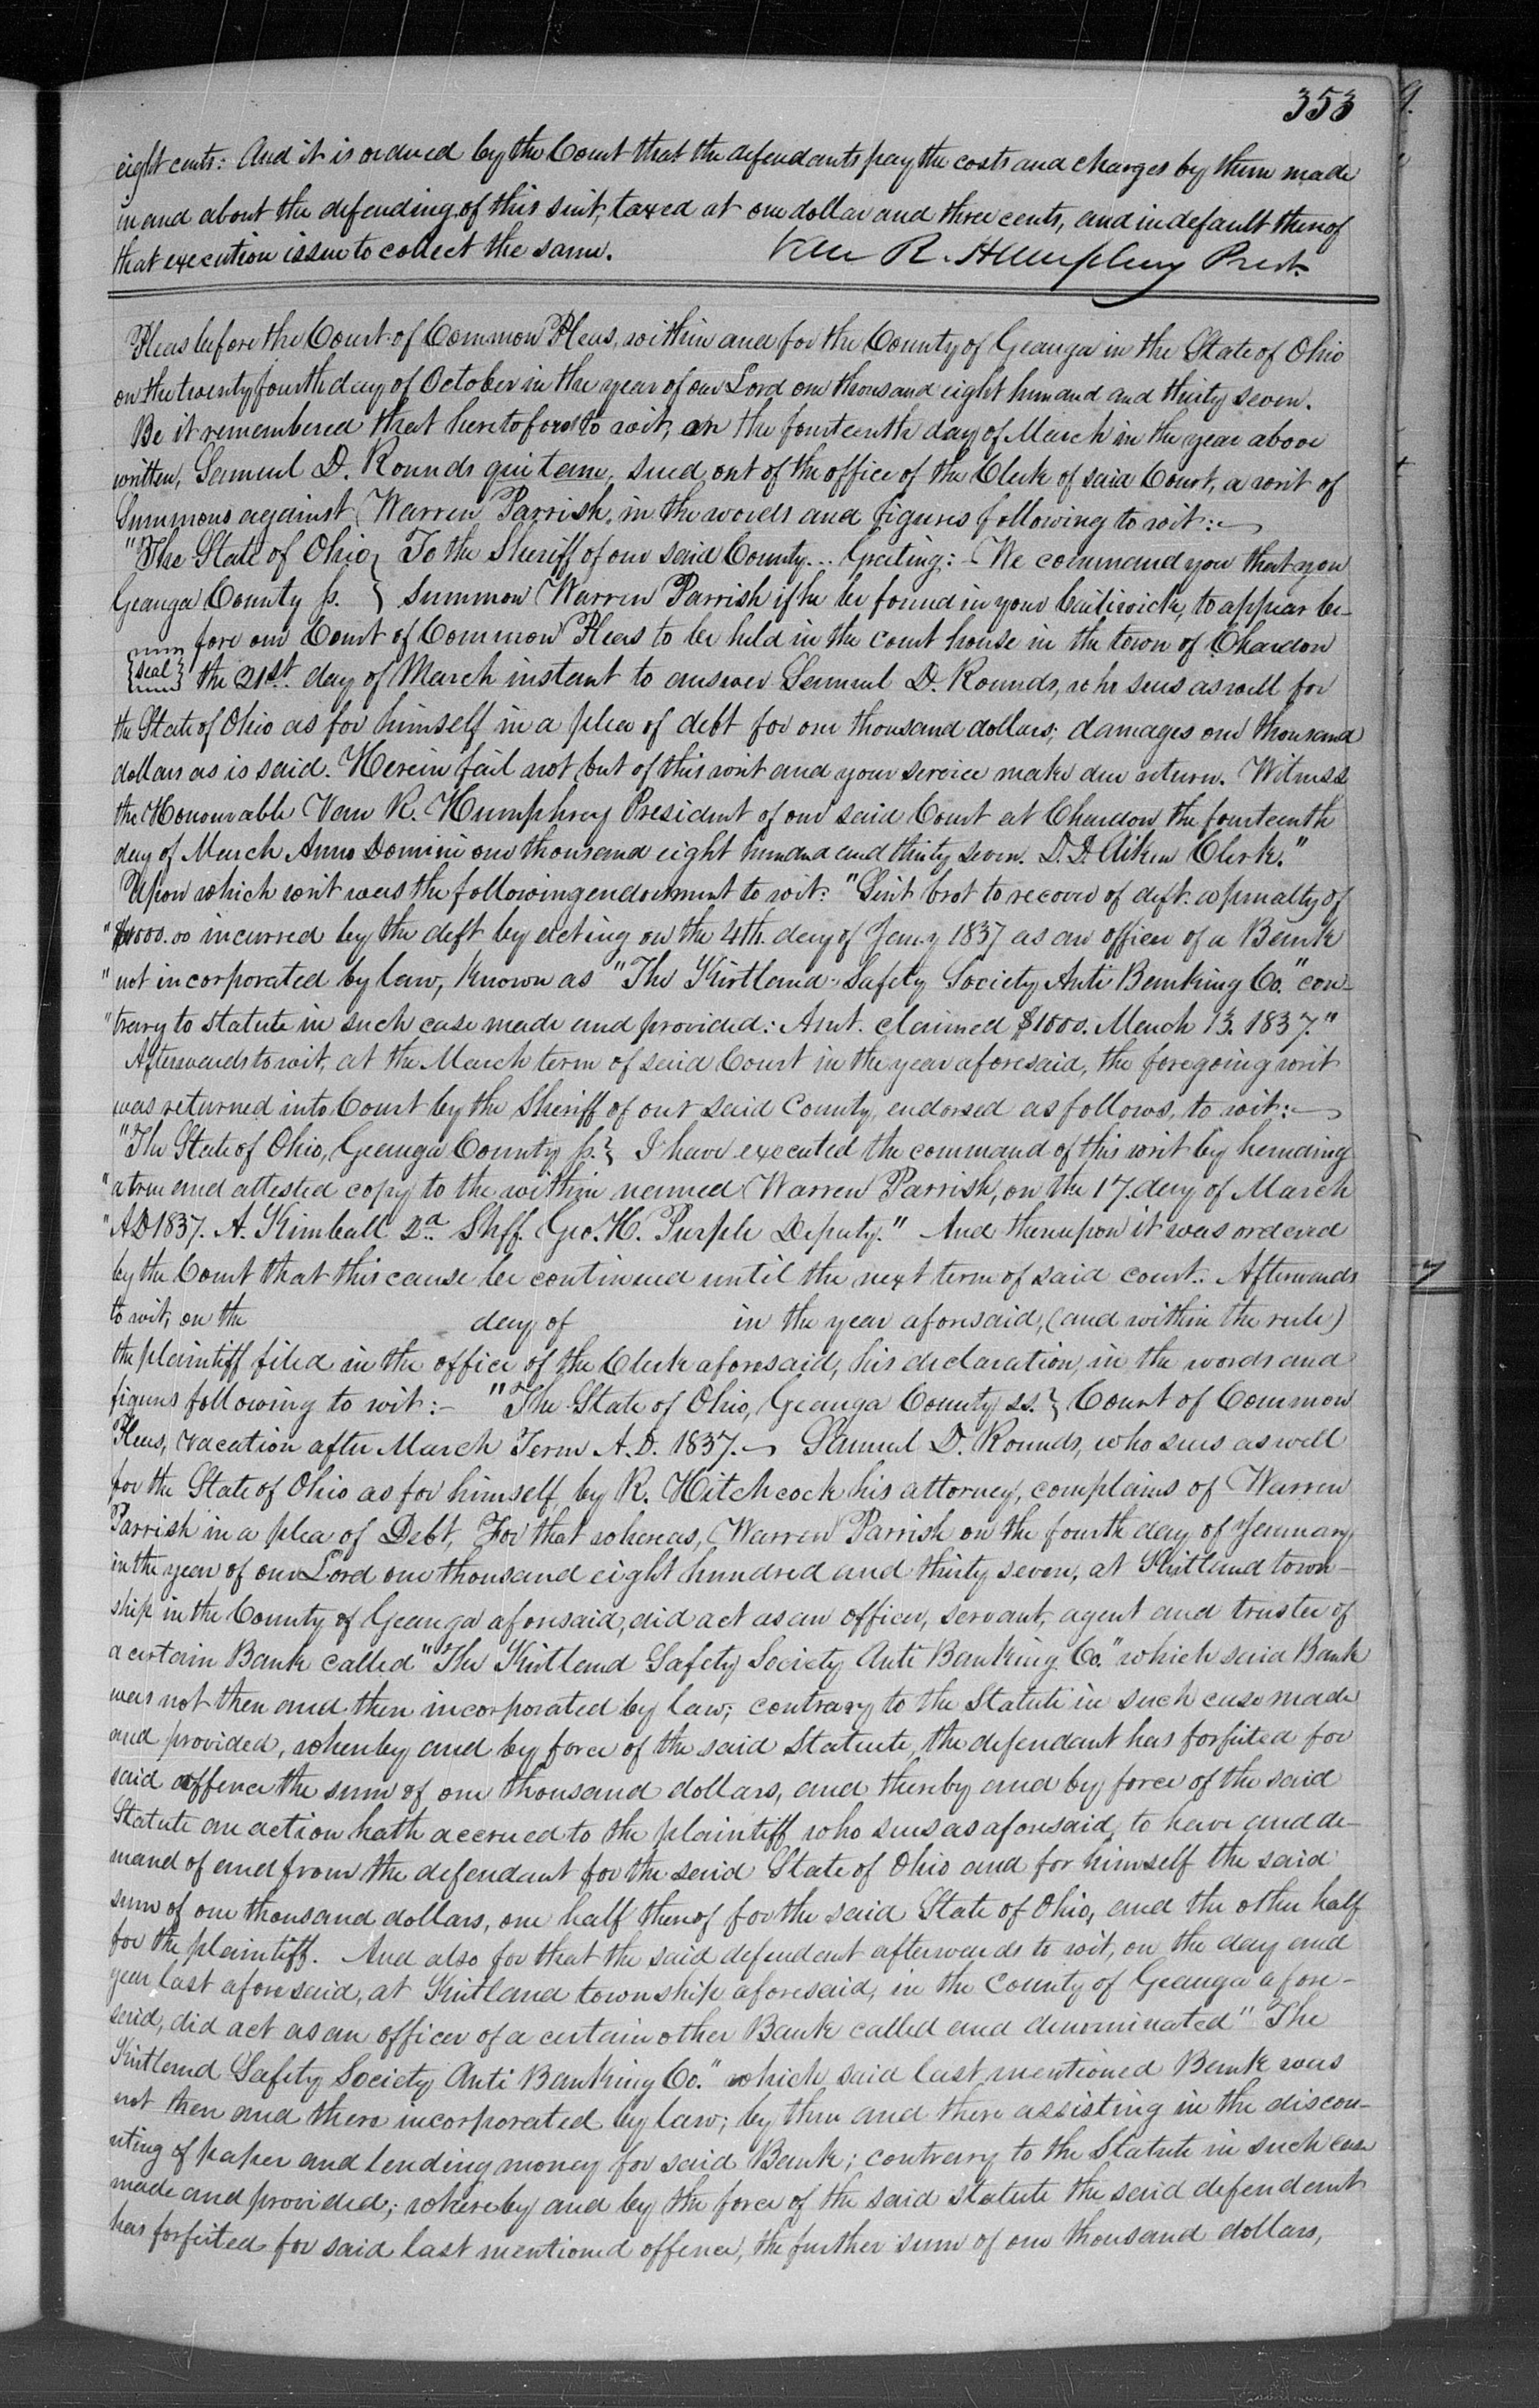 353
eight cents: And it is ordered by the Court that the defendants pay the costs and charges by them made
in and about the defending of this suit, taxed at one dollar and three cents, and in default thereof
that execution issue to collect the same. Van R. Humphrey Prest.
Pleas before the Court of Common Pleas, within and for the County of Geauga in the State of Ohio
on the twenty fourth day of October in the year of our Lord one thousand eight hundred and thirty seven.
Be it remembered that heretofore to wit, on the fourteenth day of March in the year above
written, Samuel D. Rounds qui tam, sued out of the office of the Clerk of said Court, a writ of
Summons against Warren Parrish, in the words and figures following to wit:—
"The State of Ohio } To the Sheriff of our said County... Greeting:- We command you that you
Geauga County ss. } summon Warren Parrish if he be found in your bailiwick, to appear be-
fore our Court of Common Pleas to be held in the court house in the town of Chardon
{seal} the 21st. day of March instant to answer Samuel D. Rounds, who sues as well for
the State of Ohio as for himself in a plea of debt for one thousand dollars; damages one thousand
dollars as is said. Herein fail not but of this writ and your service make due return. Witness
the Honourable Van R. Humphrey President of our said Court at Chardon the fourteenth
day of March Anno Domini one thousand eight hundred and thirty seven. D. D. Aiken Clerk."
Upon which writ was the following endorsment to wit: "Suit brot to recover of deft. a penalty of
"$1000.00 incurred by the deft by acting on the 4th. day of Jany 1837 as an officer of a Bank
"not incorporated by law, known as "The Kirtland Safety Society Anti Banking Co." con-
"trary to statute in such case made and provided: Amt. claimed $1000. March 13. 1837."
Afterwards to wit, at the March term of said Court in the year aforesaid, the foregoing writ
was returned into Court by the Sheriff of our said County, endorsed as follows, to wit:—
"The State of Ohio, Geauga County ss.} I have executed the command of this writ by handing
"a true and attested copy to the within named Warren Parrish, on the 17. day of March
"AD 1837. A. Kimball 2d. Shff. Geo. H. Purple Deputy." And thereupon it was ordered
by the Court that this cause be continued until the next term of said court. Afterwards
to wit, on the day of in the year aforesaid, (and within the rule)
the plaintiff filed in the office of the Clerk aforesaid, his declaration, in the words and
figures following to wit:- "The State of Ohio, Geauga County ss.} Court of Common
Pleas, vacation after March Term A.D. 1837.— Samuel D. Rounds, who sues as well
for the State of Ohio as for himself, by R. Hitchcock his attorney, complains of Warren
Parrish in a plea of Debt, For that whereas, Warren Parrish on the fourth day of January
in the year of our Lord one thousand eight hundred and thirty seven, at Kirtland town-
ship in the County of Geauga aforesaid, did act as an officer, servant, agent and trustee of
a certain Bank called "The Kirtland Safety Society Anti Banking Co." which said Bank
was not then and there incorporated by law; contrary to the Statute in such case made
and provided, whereby and by force of the said Statute, the defendant has forfeited for
said offence the sum of one thousand dollars, and thereby and by force of the said
Statute an action hath accrued to the plaintiff who sues as aforesaid, to have and de-
mand of and from the defendant for the said State of Ohio and for himself the said
sum of one thousand dollars, one half thereof for the said State of Ohio, and the other half
for the plaintiff. And also for that the said defendant afterwards to wit, on the day and
year last aforesaid, at Kirtland township aforesaid, in the County of Geauga afore-
said, did act as an officer of a certain other Bank called and denominated "The
Kirtland Safety Society Anti Banking Co." which said last mentioned Bank was
not then and there incorporated by law; by then and there assisting in the discou-
nting of paper and lending money for said Bank; contrary to the Statute in such case
made and provided; whereby and by the force of the said statute the said defendant
has forfeited for said last mentioned offence, the further sum of one thousand dollars,